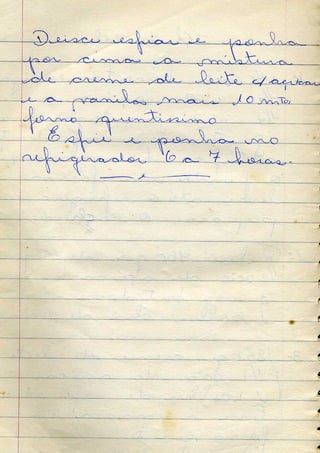 Deixe esfriar e ponha
por cima a mistura
de creme de leite c/açucar
e a vanila mais 10 mts
forno quentissimo
Esfrie e ponha no
refrigerador 6 a 7 horas.